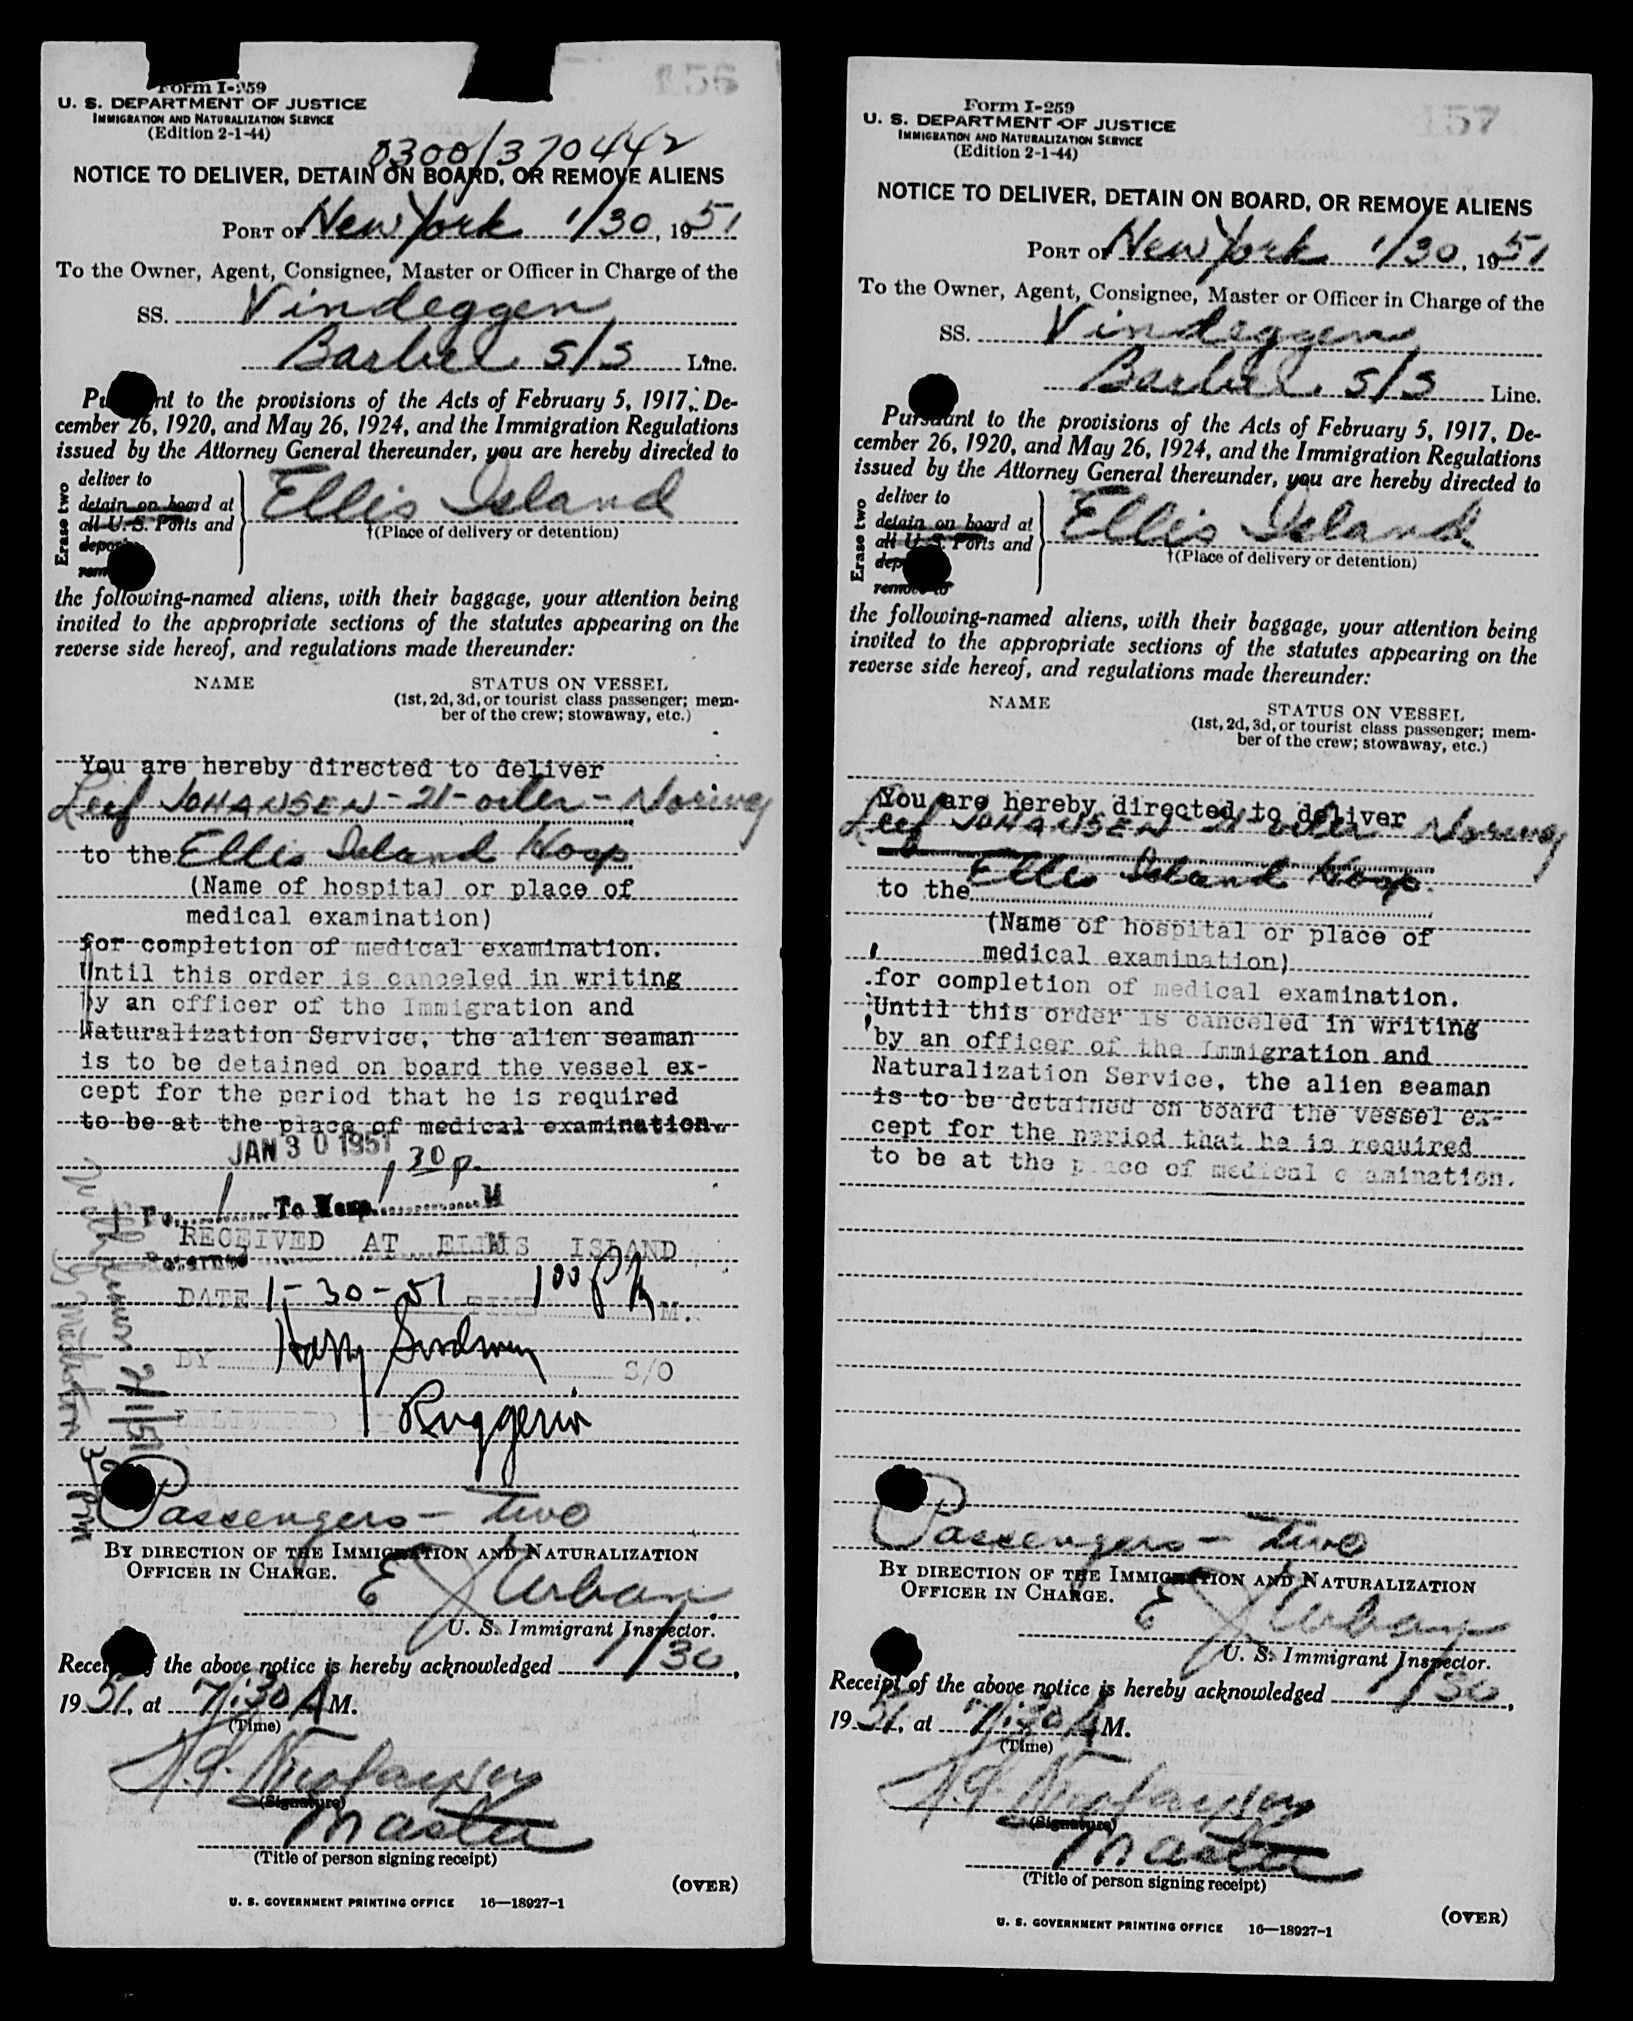 156
Form I-259
U. S. DEPARTMENT OF JUSTICE
IMMIGRATION AND NATURALIZATION SERVICE
(Edition 2-1-44)
0300/370442
NOTICE TO DELIVER, DETAIN ON BOARD, OR REMOVE ALIENS
PORT OF New York 1/30, 1951
To the Owner, Agent, Consignee, Master or Officer in Charge of the
SS. Vindeggen
Barber S/S Line.
Pu nt to the provisions of the Acts of February 5, 1917, De-
cember 26, 1920, and May 26, 1924, and the Immigration Regulations
issued by the Attorney General thereunder, you are hereby directed to
Erase two
deliver to
detain on board at
all U. S. Ports and
depo
rem
Ellis Island
†(Place of delivery or detention)
the following-named aliens, with their baggage, your attention being
invited to the appropriate sections of the statutes appearing on the
reverse side hereof, and regulations made thereunder:
NAME STATUS ON VESSEL
(1st, 2d, 3d, or tourist class passenger; mem-
ber of the crew; stowaway, etc.)
You are hereby directed to deliver
Leif JOHANSEN - 21 - oiler - Norway
to the Ellis Island Hosp
(Name of hospital or place of
medical examination)
for completion of medical examination.
Until this order is canceled in writing
by an officer of the Immigration and
Naturalization Service, the alien seaman
is to be detained on board the vessel ex-
cept for the period that he is required
to be at the place of medical examination.
JAN 30 1951 1,30 p.
To Hosp M
RECEIVED AT ELLIS ISLAND
Returned
DATE 1-30-51 TIME 1 00 P M.
BY Harry S/O
Ruggerio
2/1/51
Passengers - Two
BY DIRECTION OF THE IMMIGRATION AND NATURALIZATION
OFFICER IN CHARGE.
E J Urban
U. S. Immigrant Inspector.
Recei f the above notice is hereby acknowledged 1/30,
1951, at 7:30 A M.
(Time)
(Signature)
Master
(Title of person signing receipt)
(OVER)
U. S. GOVERNMENT PRINTING OFFICE 16—18927-1
157
Form I-259
U. S. DEPARTMENT OF JUSTICE
IMMIGRATION AND NATURALIZATION SERVICE
(Edition 2-1-44)
NOTICE TO DELIVER, DETAIN ON BOARD, OR REMOVE ALIENS
PORT OF New York 1/30, 1951
To the Owner, Agent, Consignee, Master or Officer in Charge of the
SS. Vindeggen
Barber S/S Line.
Pursuant to the provisions of the Acts of February 5, 1917, De-
cember 26, 1920, and May 26, 1924, and the Immigration Regulations
issued by the Attorney General thereunder, you are hereby directed to
Erase two
deliver to
detain on board at
all U. S. Ports and
dep
remove to
Ellis Island
†(Place of delivery or detention)
the following-named aliens, with their baggage, your attention being
invited to the appropriate sections of the statutes appearing on the
reverse side hereof, and regulations made thereunder:
NAME STATUS ON VESSEL
(1st, 2d, 3d, or tourist class passenger; mem-
ber of the crew; stowaway, etc.)
You are hereby directed to deliver
Leif JOHANSEN 21 oiler Norway
to the Ellis Island Hosp.
(Name of hospital or place of
medical examination)
for completion of medical examination.
Until this order is canceled in writing
by an officer of the Immigration and
Naturalization Service, the alien seaman
is to be detained on board the vessel ex-
cept for the period that he is required
to be at the place of medical examination.
Passengers - Two
BY DIRECTION OF THE IMMIGRATION AND NATURALIZATION
OFFICER IN CHARGE.
E J Urban
U. S. Immigrant Inspector.
Receipt of the above notice is hereby acknowledged 1/30,
1951, at 7:30 A M.
(Time)
(Signature)
Master
(Title of person signing receipt)
(OVER)
U. S. GOVERNMENT PRINTING OFFICE 16—18927-1